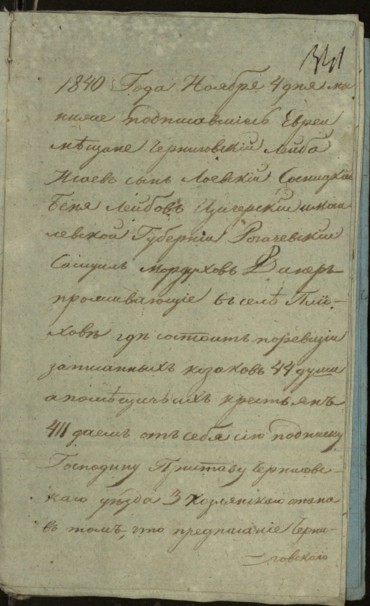 1840 Года Ноября 4 дня мы
ниже подписавшиеся Евреи
мѣщане Черниговскій Лейба
сынъ Лоевскій Сосницкій
Беня Лейбовъ и Моги
левской Губерніи Рогачевскій
Мордуховъ
проживающіе въ селѣ
ховѣ гдѣ состоитъ по ревизіи
записанныхъ козаковъ 44 души
а помѣщичьихъ крестьянъ
411 даемъ отъ себя сію подписку
Господину Приставу Черниговс-
каго уѣзда 3 стана
въ томъ, что предписаніе Черни-
говскаго